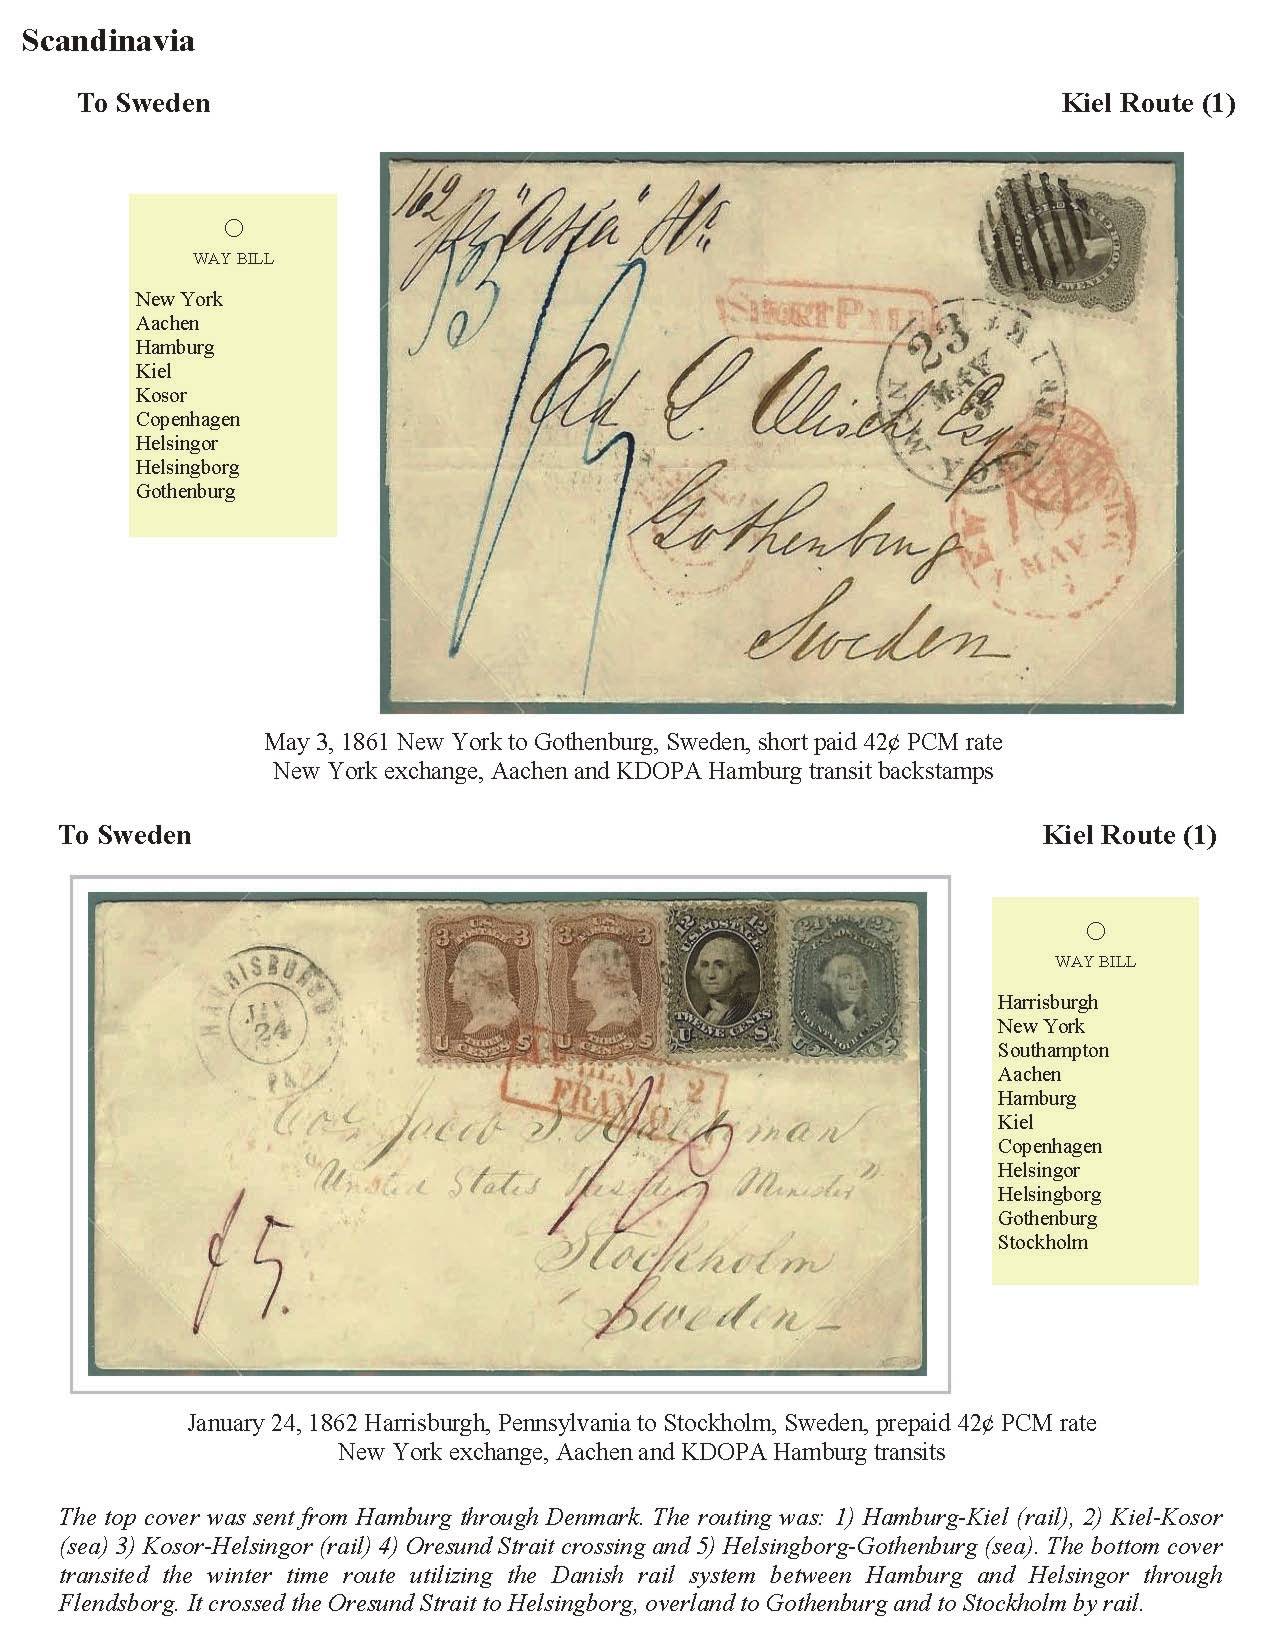 Scandinavia
To Sweden
Kiel Route (1)
WAY BILL
New York
Aachen
Hamburg
Kiel
Kosor
Copenhagen
Helsingor
Helsingborg
Gothenburg
162
pr "Asia" Str
SHORT PAID
23
MAY
NEW YORK
Ad. L.
Esq
Gothenburg
Sweden
MAY
May 3, 1861 New York to Gothenburg, Sweden, short paid 42¢ PCM rate
New York exchange, Aachen and KDOPA Hamburg transit backstamps
To Sweden
Kiel Route (1)
HARRISBURG
JAN
24
PA
3 U.S. POSTAGE 3
U CENTS S
3 U.S. POSTAGE 3
U CENTS S
12 U.S. POSTAGE 12
U TWELVE CENTS S
24 U.S. POSTAGE 24
AACHEN 1 2
FRANCO
Col. Jacob S. Haldeman
"United States Resident Minister"
Stockholm
Sweden
f 5.
WAY BILL
Harrisburgh
New York
Southampton
Aachen
Hamburg
Kiel
Copenhagen
Helsingor
Helsingborg
Gothenburg
Stockholm
January 24, 1862 Harrisburgh, Pennsylvania to Stockholm, Sweden, prepaid 42¢ PCM rate
New York exchange, Aachen and KDOPA Hamburg transits
The top cover was sent from Hamburg through Denmark. The routing was: 1) Hamburg-Kiel (rail), 2) Kiel-Kosor
(sea) 3) Kosor-Helsingor (rail) 4) Oresund Strait crossing and 5) Helsingborg-Gothenburg (sea). The bottom cover
transited the winter time route utilizing the Danish rail system between Hamburg and Helsingor through
Flendsborg. It crossed the Oresund Strait to Helsingborg, overland to Gothenburg and to Stockholm by rail.